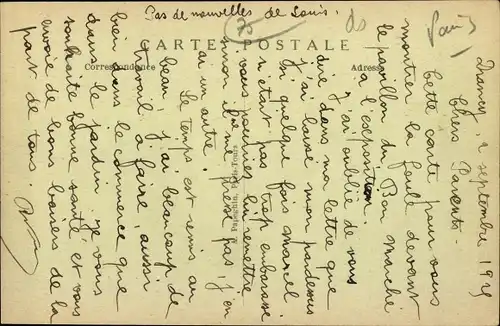 Pas de nouvelles de Louis.
CARTE POSTALE
Correspondance
Adresse
Paris
Drancy, 2 septembre 1925
Chers Parents.
Cette carte pour vous
montrer la foule devant
le pavillon du Bon Marché
a l'exposition.
J'ai oublié de vous
dire dans ma lettre que
j'ai laissé mon pardessus
si quelque fois Marcel
n'était pas trop embarassé
vous pourriez lui remettre
sinon il ne presse pas, j'en
ai un autre.
Le temps est remis au
beau, j'ai beaucoup de
travail à faire aussi
bien dans le commerce que
dans le jardin. Je vous
souhaite bonne santé et vous
envoie de bons baisers de la
part de tous.